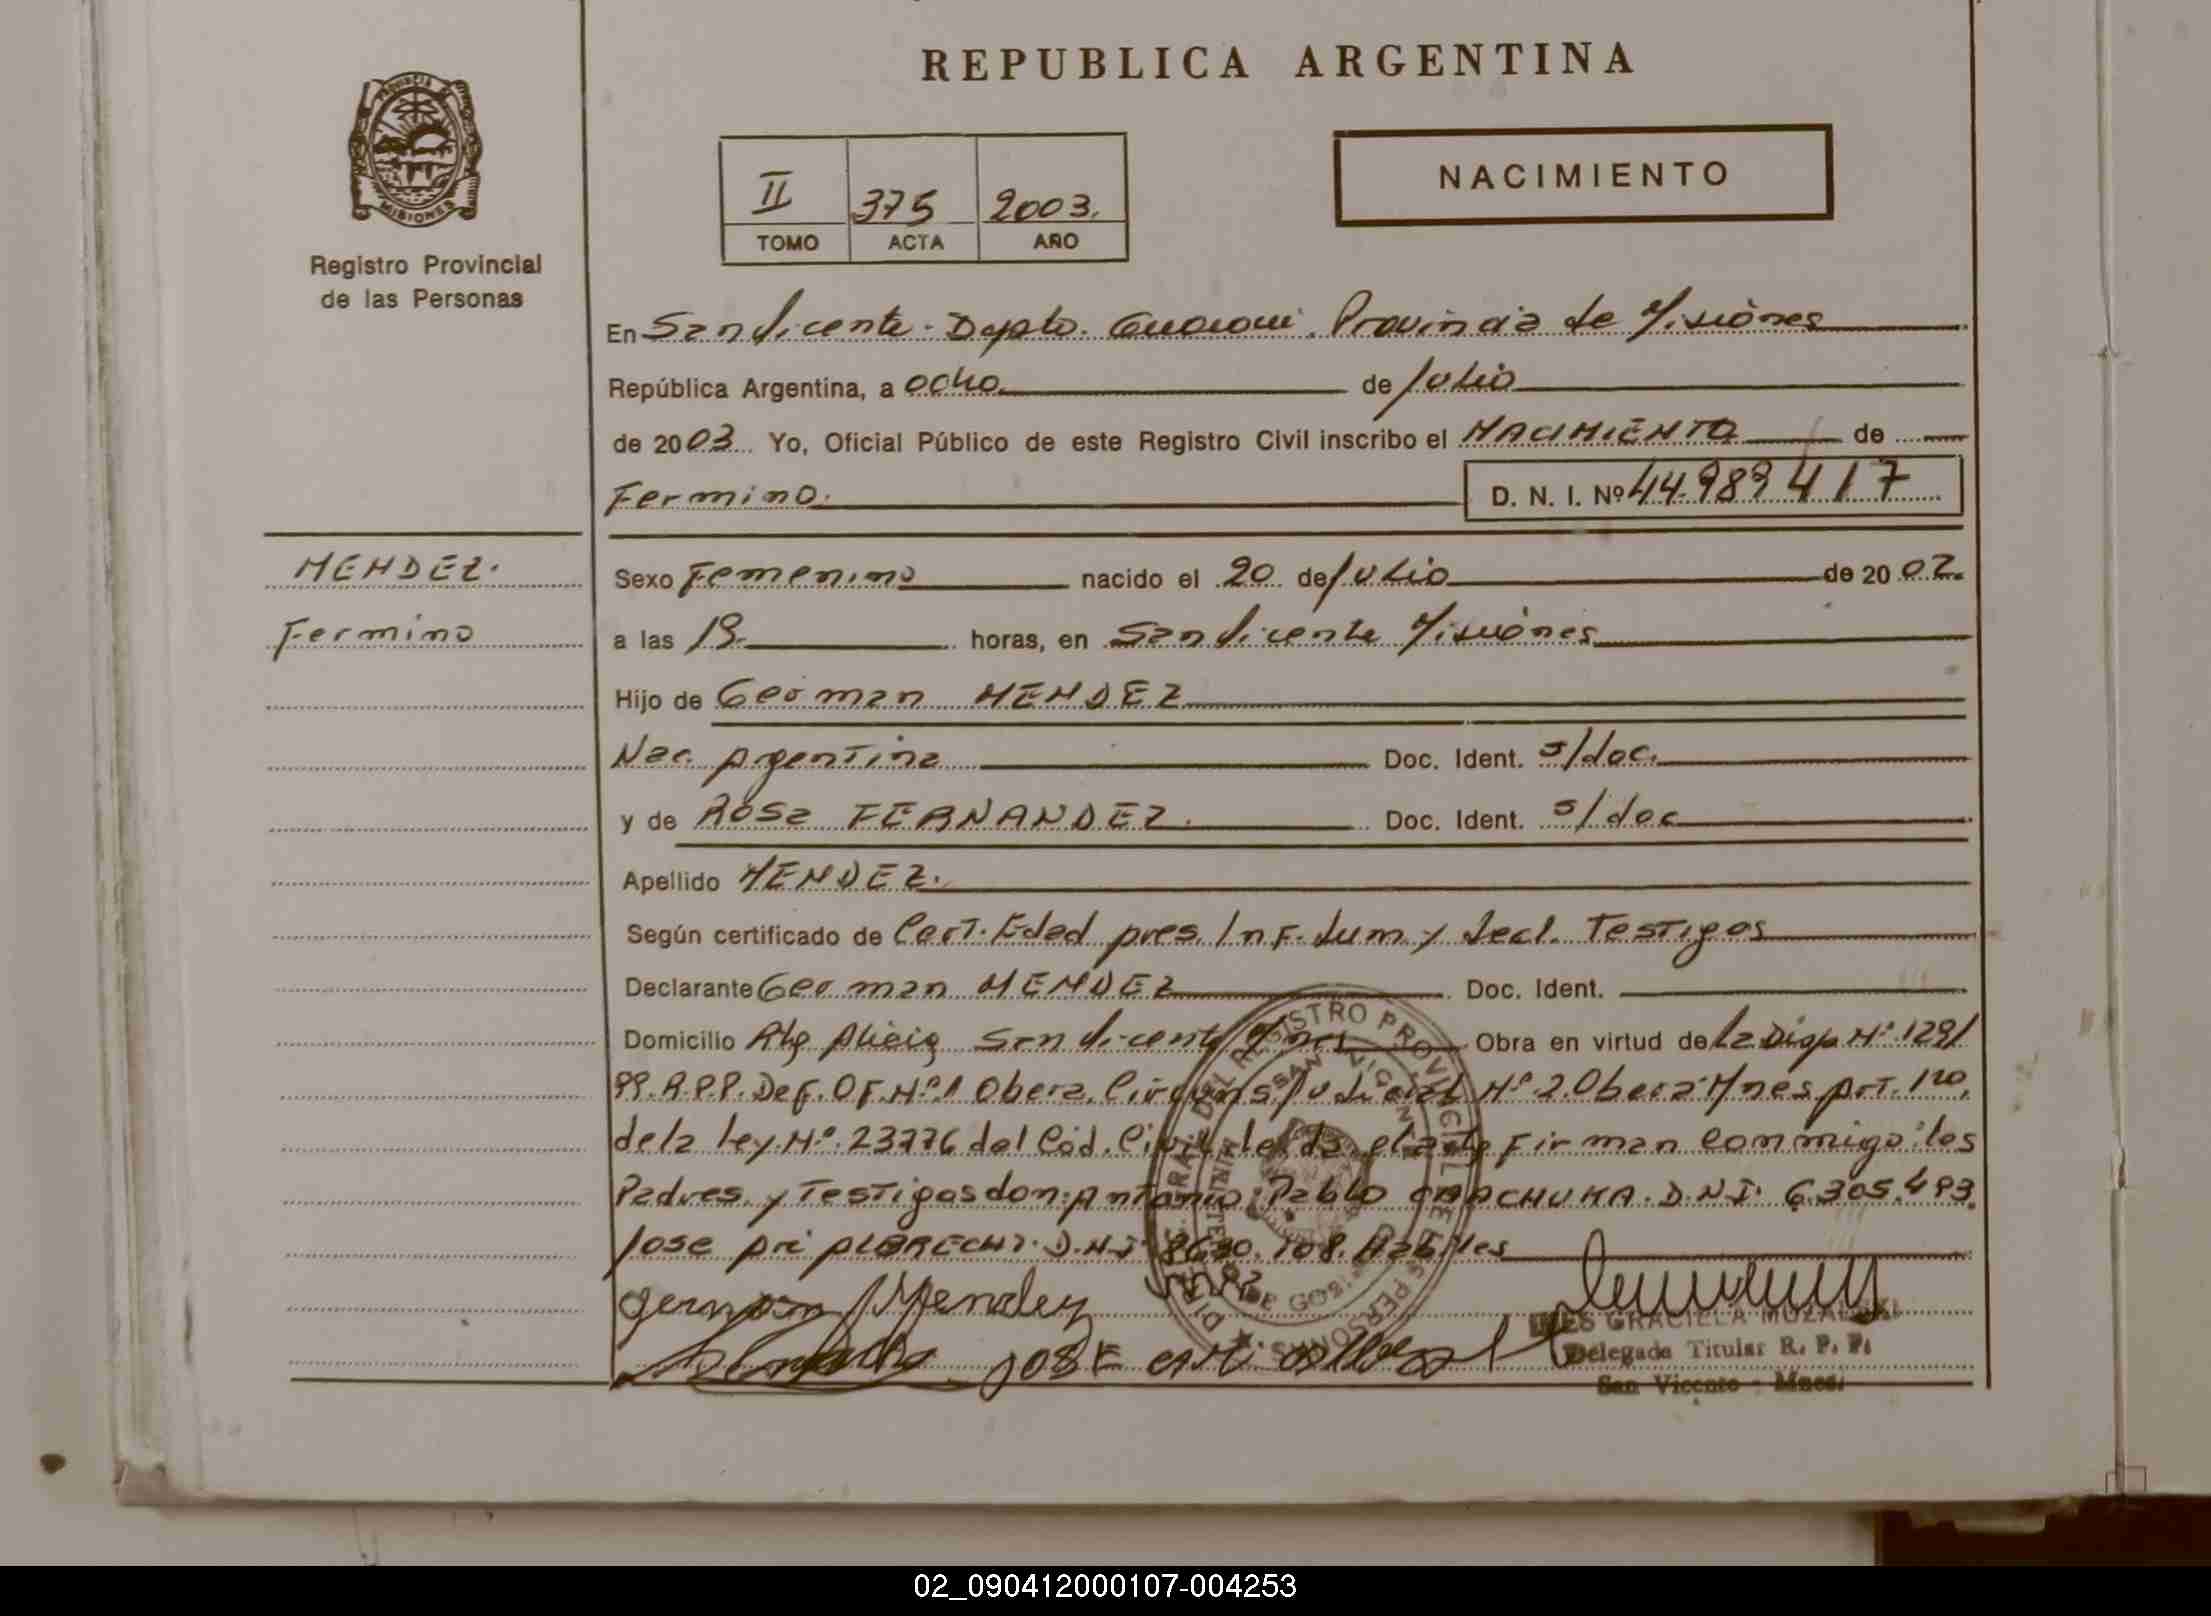 REPUBLICA ARGENTINA
PROVINCIA DE
MISIONES
Registro Provincial
de las Personas
II 375 2003.
TOMO ACTA AÑO
NACIMIENTO
En San Vicente. Depto. Guarani. Provincia de Misiones
República Argentina, a ocho de Julio
de 2003 Yo, Oficial Público de este Registro Civil inscribo el NACIMIENTO de
Fermino. D. N. I. Nº 44.989417
MENDEZ.
Fermino
Sexo Femenino nacido el 20 de Julio de 20 02.
a las 19. horas, en San Vicente Misiones
Hijo de German MENDEZ
Nac. Argentina Doc. Ident. s/doc.
y de Rosa FERNANDEZ. Doc. Ident. s/doc
Apellido MENDEZ.
Según certificado de Cert. Edad pres. Inf. Sum y Decl. Testigos
Declarante German MENDEZ Doc. Ident.
Domicilio Alicia San Vicente Mnes Obra en virtud de La Disp Nº 129/
99. R.P.P. Def. Of. Nº 1 Obera. Circuns Judicial Nº 2. Obera Mnes Art.
de la Ley. Nº 23776 del Cód. Civil. Leida el acta Firman Conmigo: los
Padres y Testigos don: Antonio Pablo D.N.I. 6.305.493.
Jose Ari ALBRECHT. D.N.I. 108. Habiles
german Mendez
JOSE ari
INES GRACIELA
Delegada Titular R. P. P.
San Vicente - Mnes.
DEL REGISTRO PROVINCIAL DE LAS PERSONAS
SAN VICENTE
02_090412000107-004253